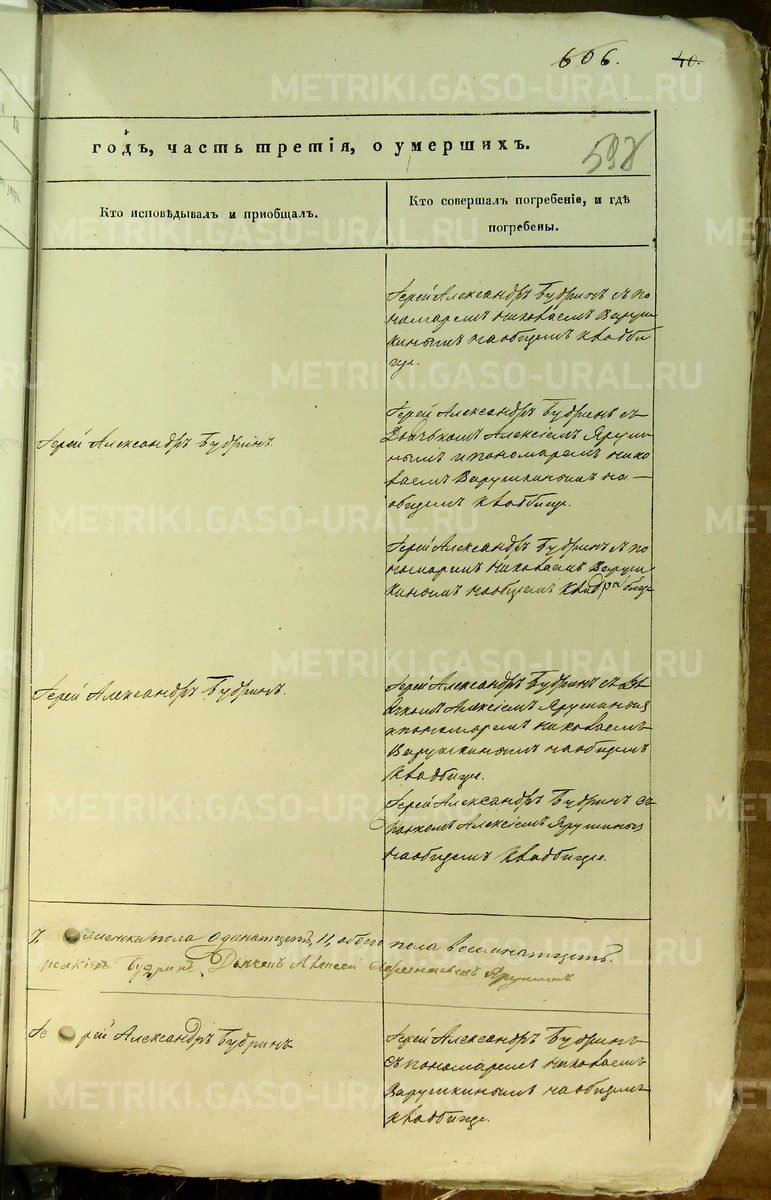 606. 40.
METRIKI.GASO-URAL.RU
годъ, часть третія, о умершихъ.
598
Кто исповѣдывалъ и приобщалъ.
Кто совершалъ погребеніе, и гдѣ
погребены.
Іерей Александръ Будринъ съ по
номаремъ Николаемъ Варуш
кинымъ на общемъ кладби
ще.
Іерей Александръ Будринъ
Іерей Александръ Будринъ съ
Дьячкомъ Алексіемъ Яруши
нымъ и пономаремъ Нико
лаемъ Варушкинымъ на
общемъ кладбище.
Іерей Александръ Будринъ съ по
номаремъ Николаемъ Варуш
кинымъ на общемъ
Іерей Александръ Будринъ.
Іерей Александръ Будринъ съ дь
ячкомъ Алексіемъ Ярушинымъ
и пономаремъ Николаемъ
Варушкинымъ на общемъ
кладбище.
Іерей Александръ Будринъ съ
Алексіемъ Ярушинымъ
на общемъ кладбище.
7, женска пола одинатцеть, 11, обоего пола восемнатцеть.
Будринъ, Дьячекъ Алексей Ярушинъ
Іерей Александръ Будринъ
Іерей Александръ Будринъ
съ пономаремъ Николаемъ
Варушкинымъ на общемъ
кладбище.